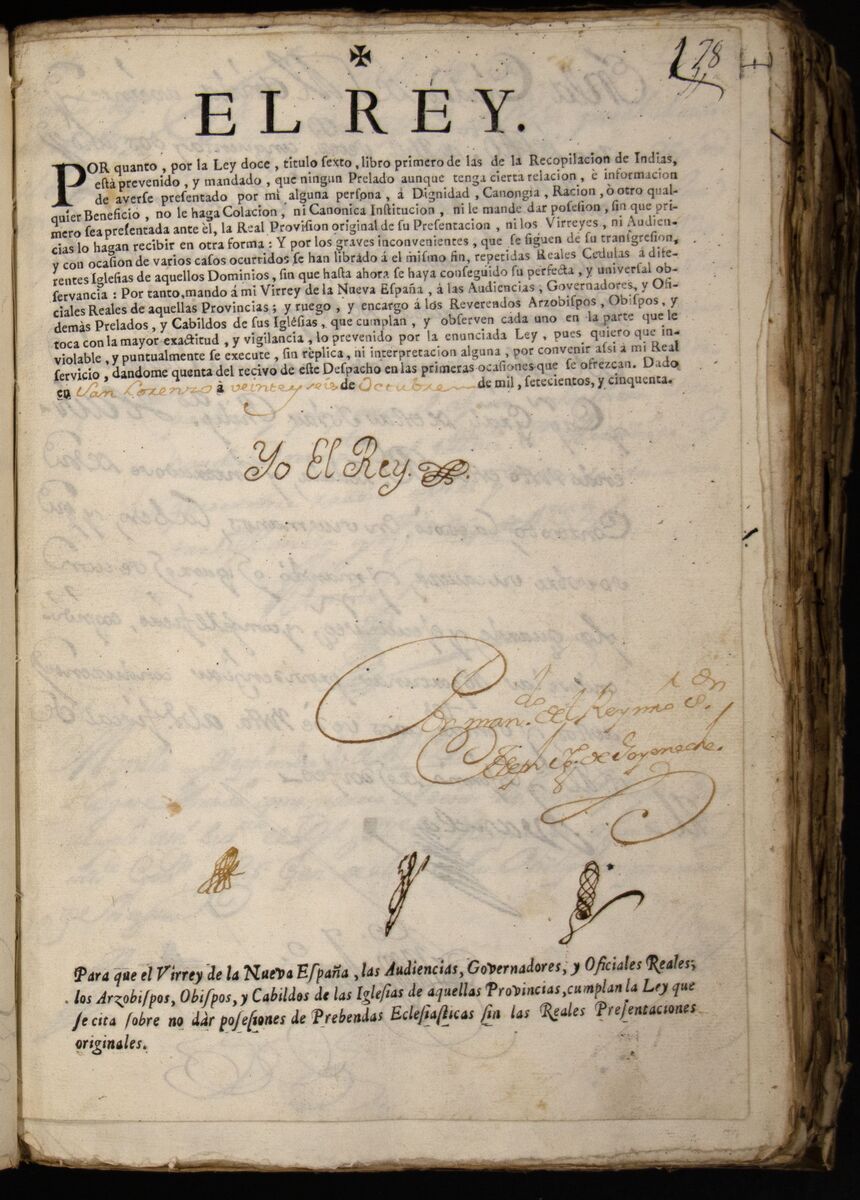 128
✠
EL REY.
POR quanto, por la Ley doce, titulo ſexto, libro primero de las de la Recopilacion de Indias,
eſtà prevenido, y mandado, que ningun Prelado aunque tenga cierta relacion, è informacion
de averse preſentado por mi alguna perſona, à Dignidad, Canongia, Racion, ò otro qual-
quier Beneficio, no le haga Colacion, ni Canonica Inſtitucion, ni le mande dar poſeſion, ſin que pri-
mero ſea preſentada ante èl, la Real Proviſion original de ſu Preſentacion, ni los Virreyes, ni Audien-
cias lo hagan recibir en otra forma: Y por los graves inconvenientes, que ſe ſiguen de ſu transgreſion,
y con ocaſion de varios caſos ocurridos ſe han librado á el miſmo fin, repetidas Reales Cedulas à dife-
rentes Igleſias de aquellos Dominios, ſin que haſta ahora ſe haya conſeguido ſu perfecta, y univerſal ob-
ſervancia: Por tanto, mando á mi Virrey de la Nueva Eſpaña, á las Audiencias, Governadores, y Ofi-
ciales Reales de aquellas Provincias; y ruego, y encargo á lós Reverendos Arzobiſpos, Obiſpos, y
demàs Prelados, y Cabildos de sus Igléſias, que cumplan, y obſerven cada uno en la parte que le
toca con la mayor exactitud, y vigilancia, lo prevenido por la enunciada Ley, pues quiero que in-
violable, y puntualmente ſe execute, ſin rèplica, ni interpretacion alguna, por convenir aſsi à mi Real
ſervicio, dandome quenta del recivo de eſte Deſpacho en las primeras ocaſiones que ſe ofrezcan. Dado
en San Lorenzo à veinte y seis de Octubre de mil, ſetecientos, y cinquenta.
Yo El Rey.
Por man.do del Rey nro s.or
Joſeph Ig.o de Goyeneche.
Para que el Virrey de la Nueva Eſpaña, las Audiencias, Governadores, y Oficiales Reales;
los Arzobiſpos, Obiſpos, y Cabildos de las Igleſias de aquellas Provincias, cumplan la Ley que
ſe cita ſobre no dàr poſeſiones de Prebendas Ecleſiaſticas ſin las Reales Preſentaciones
originales.